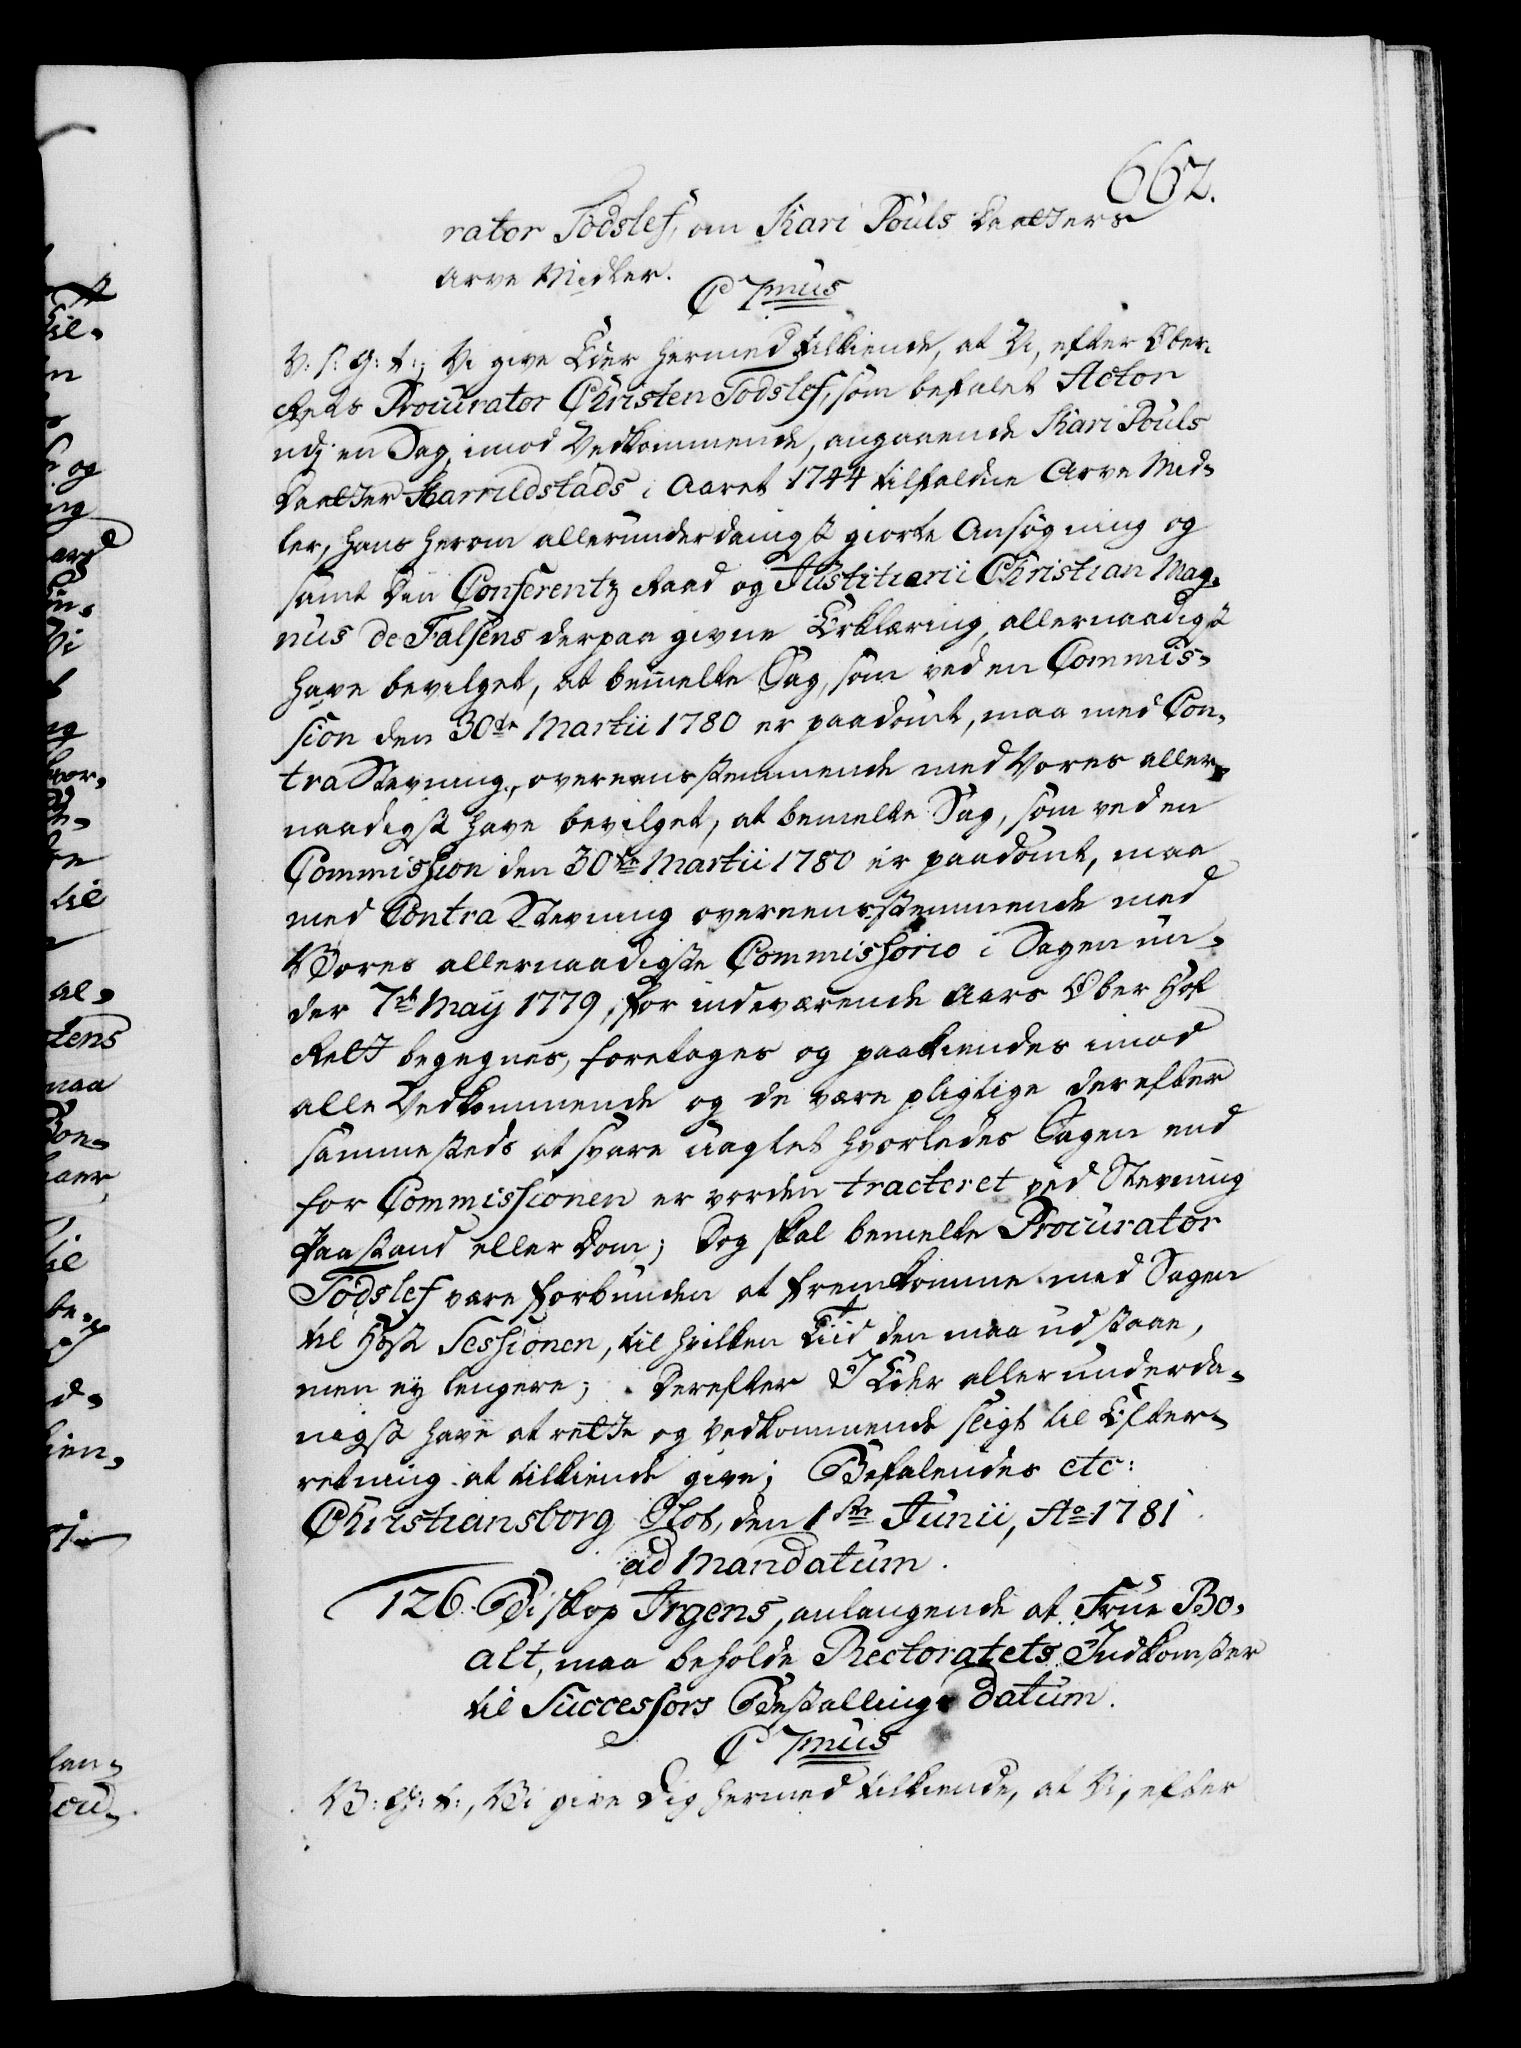 662.
rator Todslef, om Kari Pouls Daatters
Arve Midler.
C 7mus
V: S: G: T:, Vi give Eder hermed tilkiende, at Vi, efter Ober-
Rets Procurator Christen Todslef, som befalet Actor
udj en Sag, imod Vedkommende, angaaende Kari Pouls
Daatter Harrildstads i Aaret 1744 tilfaldne Arve Mid-
ler, hans herom allerunderdanigst giorte Ansøgning og
samt Din Conferentz Raad og Justitiarii Christian Mag-
nus de Falsens derpaa givne Erklæring, allernaadigst
have bevilget, at bemelte Sag, som ved en Commis-
sion den 30te Martii 1780 er paadømt, maa med Con-
tra Stevning, overeensstemmende med Vores aller-
naadigst have bevilget, at bemelte Sag, som ved en
Commission den 30te Martii 1780 er paadømt, maa
med Contra Stevning overeensstemmende med
Vores allernaadigste Commissorio i Sagen un-
der 7de Maij 1779, for indeværende Aars Ober Hof
Rett begegnes, foretages og paakiendes imod
alle Vedkommende og de være pligtige derefter
sammesteds at svare uagtet hvorledes Sagen end
for Commissionen er vorden tracteret ved Stevning
Paastand eller Dom; Dog skal bemelte Procurator
Todslef være forbunden at fremkomme med Sagen
til Høst Sessionen, til hvilken Tiid den maa udstaae,
men ej lengere; Derefter I Eder allerunderda-
nigst have at rette og vedkommende sligt til Efter-
retning at tilkiende give; Befalendes etc:
Christiansborg Slot, den 1ste Junii, Ao 1781
ad Mandatum.
126. Biskop Irgens, anlangende at Frue Bo-
alt, maa beholde Rectoratets Indkomster
til Successors Bestallings Datum.
C 7mus
V: G: T:, Vi give Dig hermed tilkiende, at Vi, efter